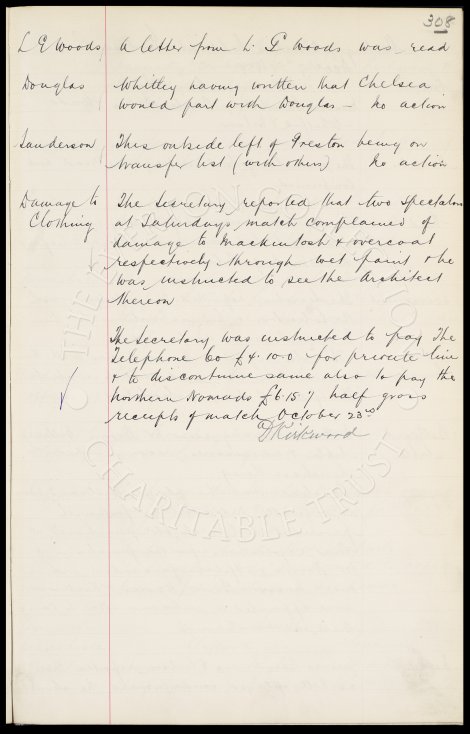 308
L G Woods A letter from L. G Woods was read
Douglas Whitley having written that Chelsea
would part with Douglas - No action
Sanderson This outside left of Preston being on
transfer list (with others) No action
Damage to The Secretary reported that two spectators
Clothing at Saturdays match complained of
damage to Mackintosh & overcoat
respectively through wet paint & he
was instructed to see the Architect
thereon
The Secretary was instructed to pay The
Telephone Co £4.10.0 for private line
& to discontinue same also to pay the
Northern Nomads £6.15.7 half gross
receipts of match October 23rd
D Kirkwood
CHARITABLE TRUST